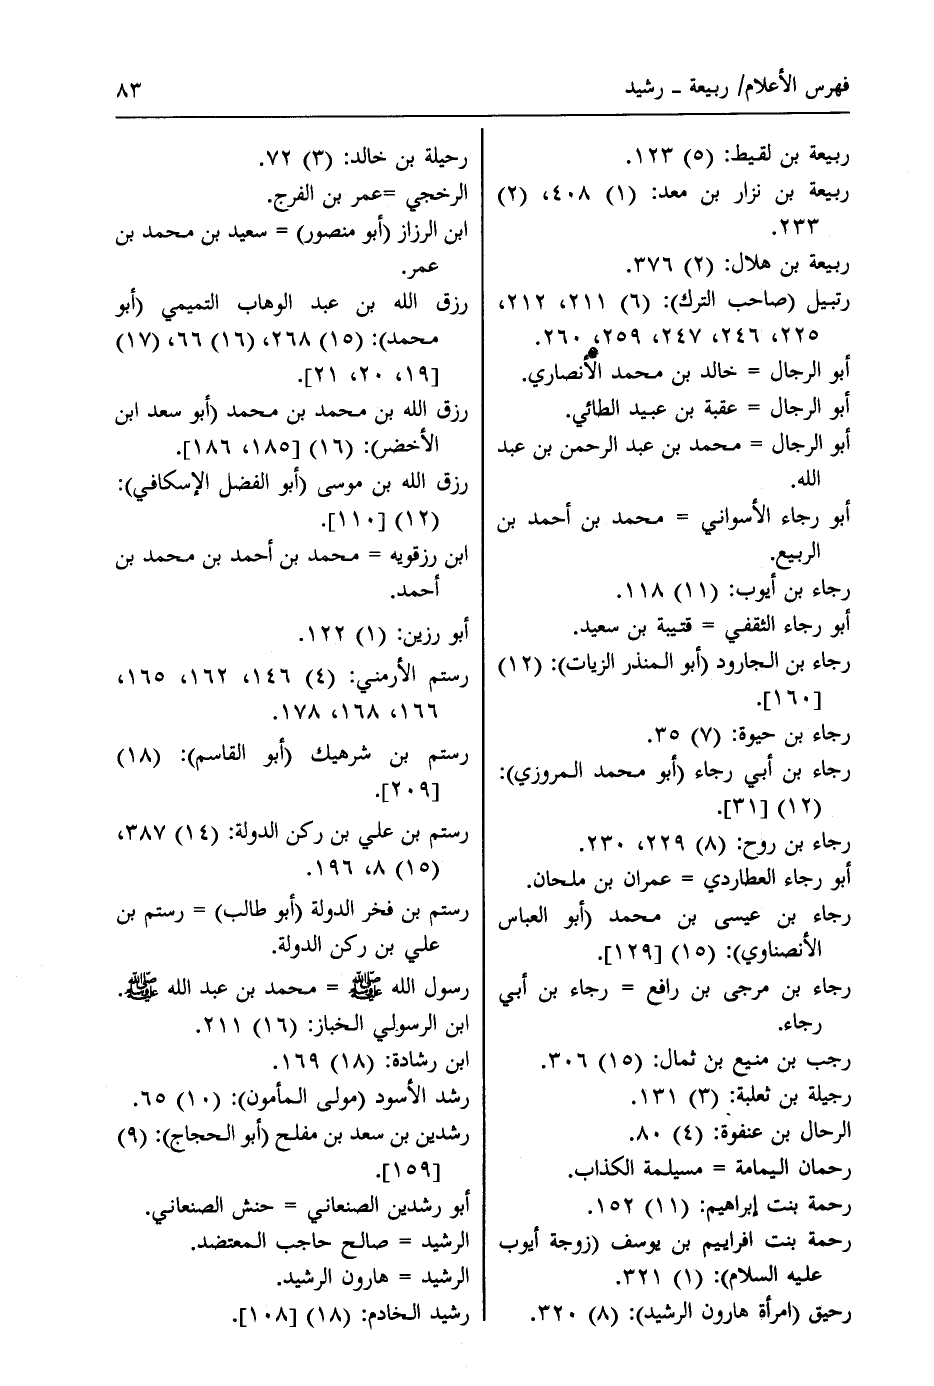 فهرس الأعلام/ ربيعة ـ رشيد
٨٣
ربيعة بن لقيط: (٥) ١٢٣.
ربيعة بن نزار بن معد: (١) ٤٠٨، (٢)
٢٣٣.
ربيعة بن هلال: (٢) ٣٧٦.
رتبيل (صاحب الترك): (٦) ٢١١، ٢١٢،
٢٢٥، ٢٤٦، ٢٤٧، ٢٥٩، ٢٦٠.
أبو الرجال = خالد بن محمد الأنصاري.
أبو الرجال = عقبة بن عبيد الطائي.
أبو الرجال = محمد بن عبد الرحمن بن عبد
الله.
أبو رجاء الأسواني = محمد بن أحمد بن
الربيع.
رجاء بن أيوب: (١١) ١١٨.
أبو رجاء الثقفي = قتيبة بن سعيد.
رجاء بن الجارود (أبو المنذر الزيات): (١٢)
[١٦٠].
رجاء بن حيوة: (٧) ٣٥.
رجاء بن أبي رجاء (أبو محمد المروزي):
(١٢) [٣١].
رجاء بن روح: (٨) ٢٢٩، ٢٣٠.
أبو رجاء العطاردي = عمران بن ملحان.
رجاء بن عيسى بن محمد (أبو العباس
الأنصناوي): (١٥) [١٢٩].
رجاء بن مرجى بن رافع = رجاء بن أبي
رجاء.
رجب بن منيع بن ثمال: (١٥) ٣٠٦.
رجيلة بن ثعلبة: (٣) ١٣١.
الرحال بن عنفوة: (٤) ٨٠.
رحمان اليمامة = مسيلمة الكذاب.
رحمة بنت إبراهيم: (١١) ١٥٢.
رحمة بنت افراييم بن يوسف (زوجة أيوب
عليه السلام): (١) ٣٢١.
رحيق (امرأة هارون الرشيد): (٨) ٣٢٠.
رحيلة بن خالد: (٣) ٧٢.
الرخجي =عمر بن الفرج.
ابن الرزاز (أبو منصور) = سعيد بن محمد بن
عمر.
رزق الله بن عبد الوهاب التميمي (أبو
محمد): (١٥) ٢٦٨، (١٦) ٦٦، (١٧)
[١٩، ٢٠، ٢١].
رزق الله بن محمد بن محمد (أبو سعد ابن
الأخضر): (١٦) [١٨٥، ١٨٦].
رزق الله بن موسى (أبو الفضل الإسكافي):
(١٢) [١١٠].
ابن رزقويه = محمد بن أحمد بن محمد بن
أحمد.
أبو رزين: (١) ١٢٢.
رستم الأرمني: (٤) ١٤٦، ١٦٢، ١٦٥،
١٦٦، ١٦٨، ١٧٨.
رستم بن شرهيك (أبو القاسم): (١٨)
[٢٠٩].
رستم بن علي بن ركن الدولة: (١٤) ٣٨٧،
(١٥) ٨، ١٩٦.
رستم بن فخر الدولة (أبو طالب) = رستم بن
علي بن ركن الدولة.
رسول الله ﷺ = محمد بن عبد الله ﷺ.
ابن الرسولي الخباز: (١٦) ٢١١.
ابن رشادة: (١٨) ١٦٩.
رشد الأسود (مولى المأمون): (١٠) ٦٥.
رشدين بن سعد بن مفلح (أبو الحجاج): (٩)
[١٥٩].
أبو رشدين الصنعاني = حنش الصنعاني.
الرشيد = صالح حاجب المعتضد.
الرشيد = هارون الرشيد.
رشيد الخادم: (١٨) [١٠٨].